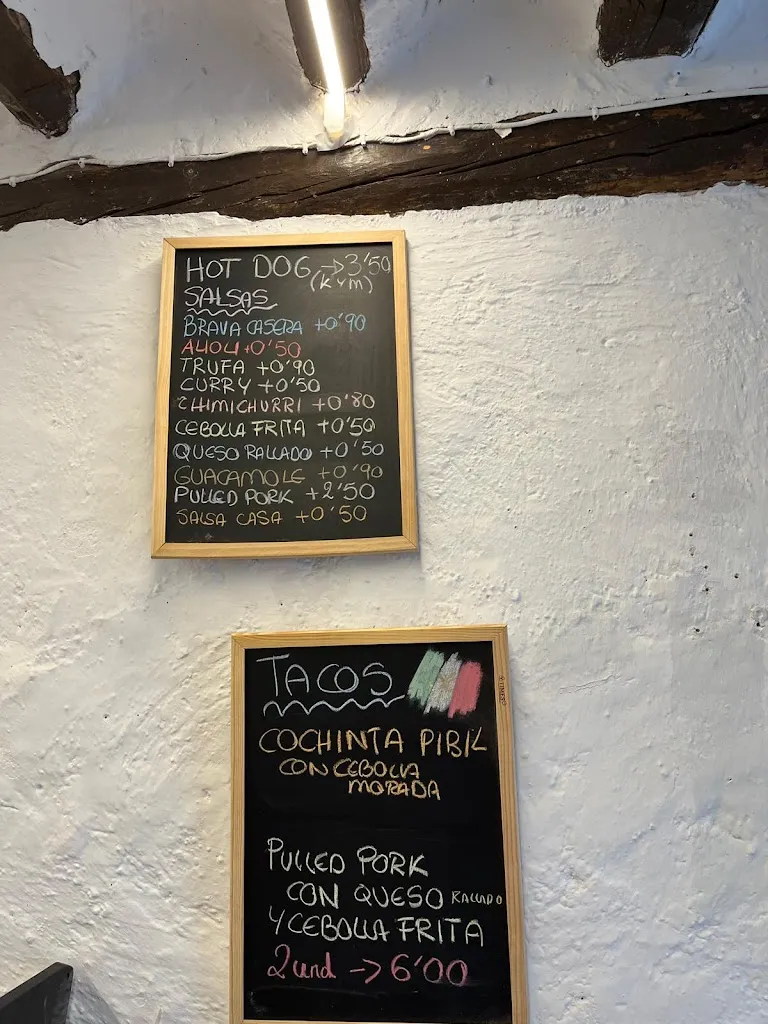 HOT DOG → 3'50
(K y M)
SALSAS
BRAVA CASERA +0'90
ALIOLI +0'50
TRUFA +0'90
CURRY +0'50
CHIMICHURRI +0'80
CEBOLLA FRITA +0'50
QUESO RALLADO +0'50
GUACAMOLE +0'90
PULLED PORK +2'50
SALSA CASA +0'50
TACOS
COCHINTA PIBIL
CON CEBOLLA
MORADA
PULLED PORK
CON QUESO RALLADO
Y CEBOLLA FRITA
2 und → 6'00